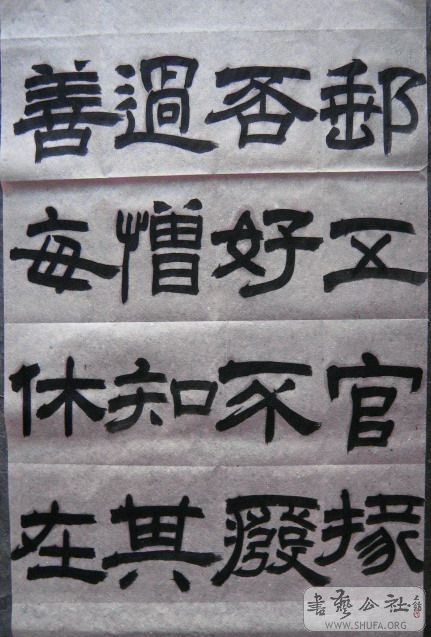 郵五官掾
否好不廢
過憎知其
善每休在
書藝公社
WWW.SHUFA.ORG